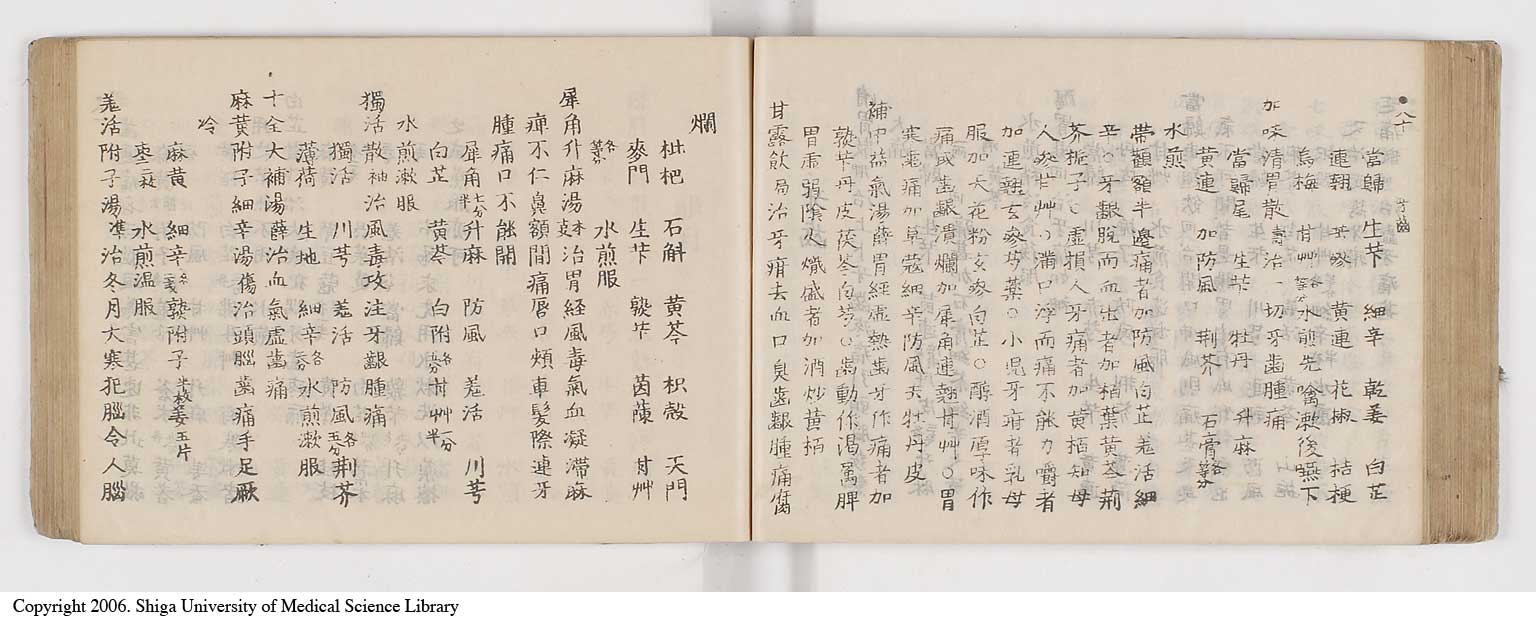 八十 牙齒
當歸 生芐 細辛 乾姜 白芷
連翹 苦參 黄連 花椒 桔梗
烏梅 甘艸各等分水煎先噙漱後嚥下
加味清胃散壽治一切牙齒腫痛
當歸尾 生芐 牡丹 升麻
黄連 加防風 荆芥 石膏各等分
水煎
帶顴額半邊痛者加防風白芷羌活細
辛○牙齦脱而血出者加栢葉黄芩荆
芥梔子○虚損人牙痛者加黄栢知母
人參甘艸○滿口浮而痛不能力嚼者
加連翹玄參芍藥○小児牙疳者乳母
服加天花粉玄參白芷○醇酒厚味作
痛或齒齦潰爛加犀角連翹甘艸○胃
寒痛加草蔻細辛防風去牡丹皮
補中益氣湯薛胃經虚熱齒牙作痛者加
熟芐丹皮茯苓白芍○齒動作渴属脾
胃虚弱陰火熾盛者加酒炒黄栢
甘露飲局治牙疳去血口臭齒齦腫痛腐
爛
枇杷 石斛 黄芩 枳殼 天門
麥門 生芐 熟芐 茵陳 甘艸
各等分 水煎服
犀角升麻湯本治胃経風毒氣血凝滯麻
痺不仁鼻額間痛唇口頬車髪際連牙
腫痛口不能開
犀角七分半升麻 防風 羌活 川芎
白芷 黄芩 白附各分甘艸一分半
水煎漱服
獨活散袖治風毒攻注牙齦腫痛
獨活 川芎 羌活 防風各五分荆芥
薄荷 生地 細辛各分水煎漱服
十全大補湯薛治血氣虚齒痛
麻黄附子細辛湯傷治頭腦齒痛手足厥
冷
麻黄 細辛各戔熟附子 姜五片
棗二枚 水煎温服
羌活附子湯準治冬月大寒犯腦令人腦